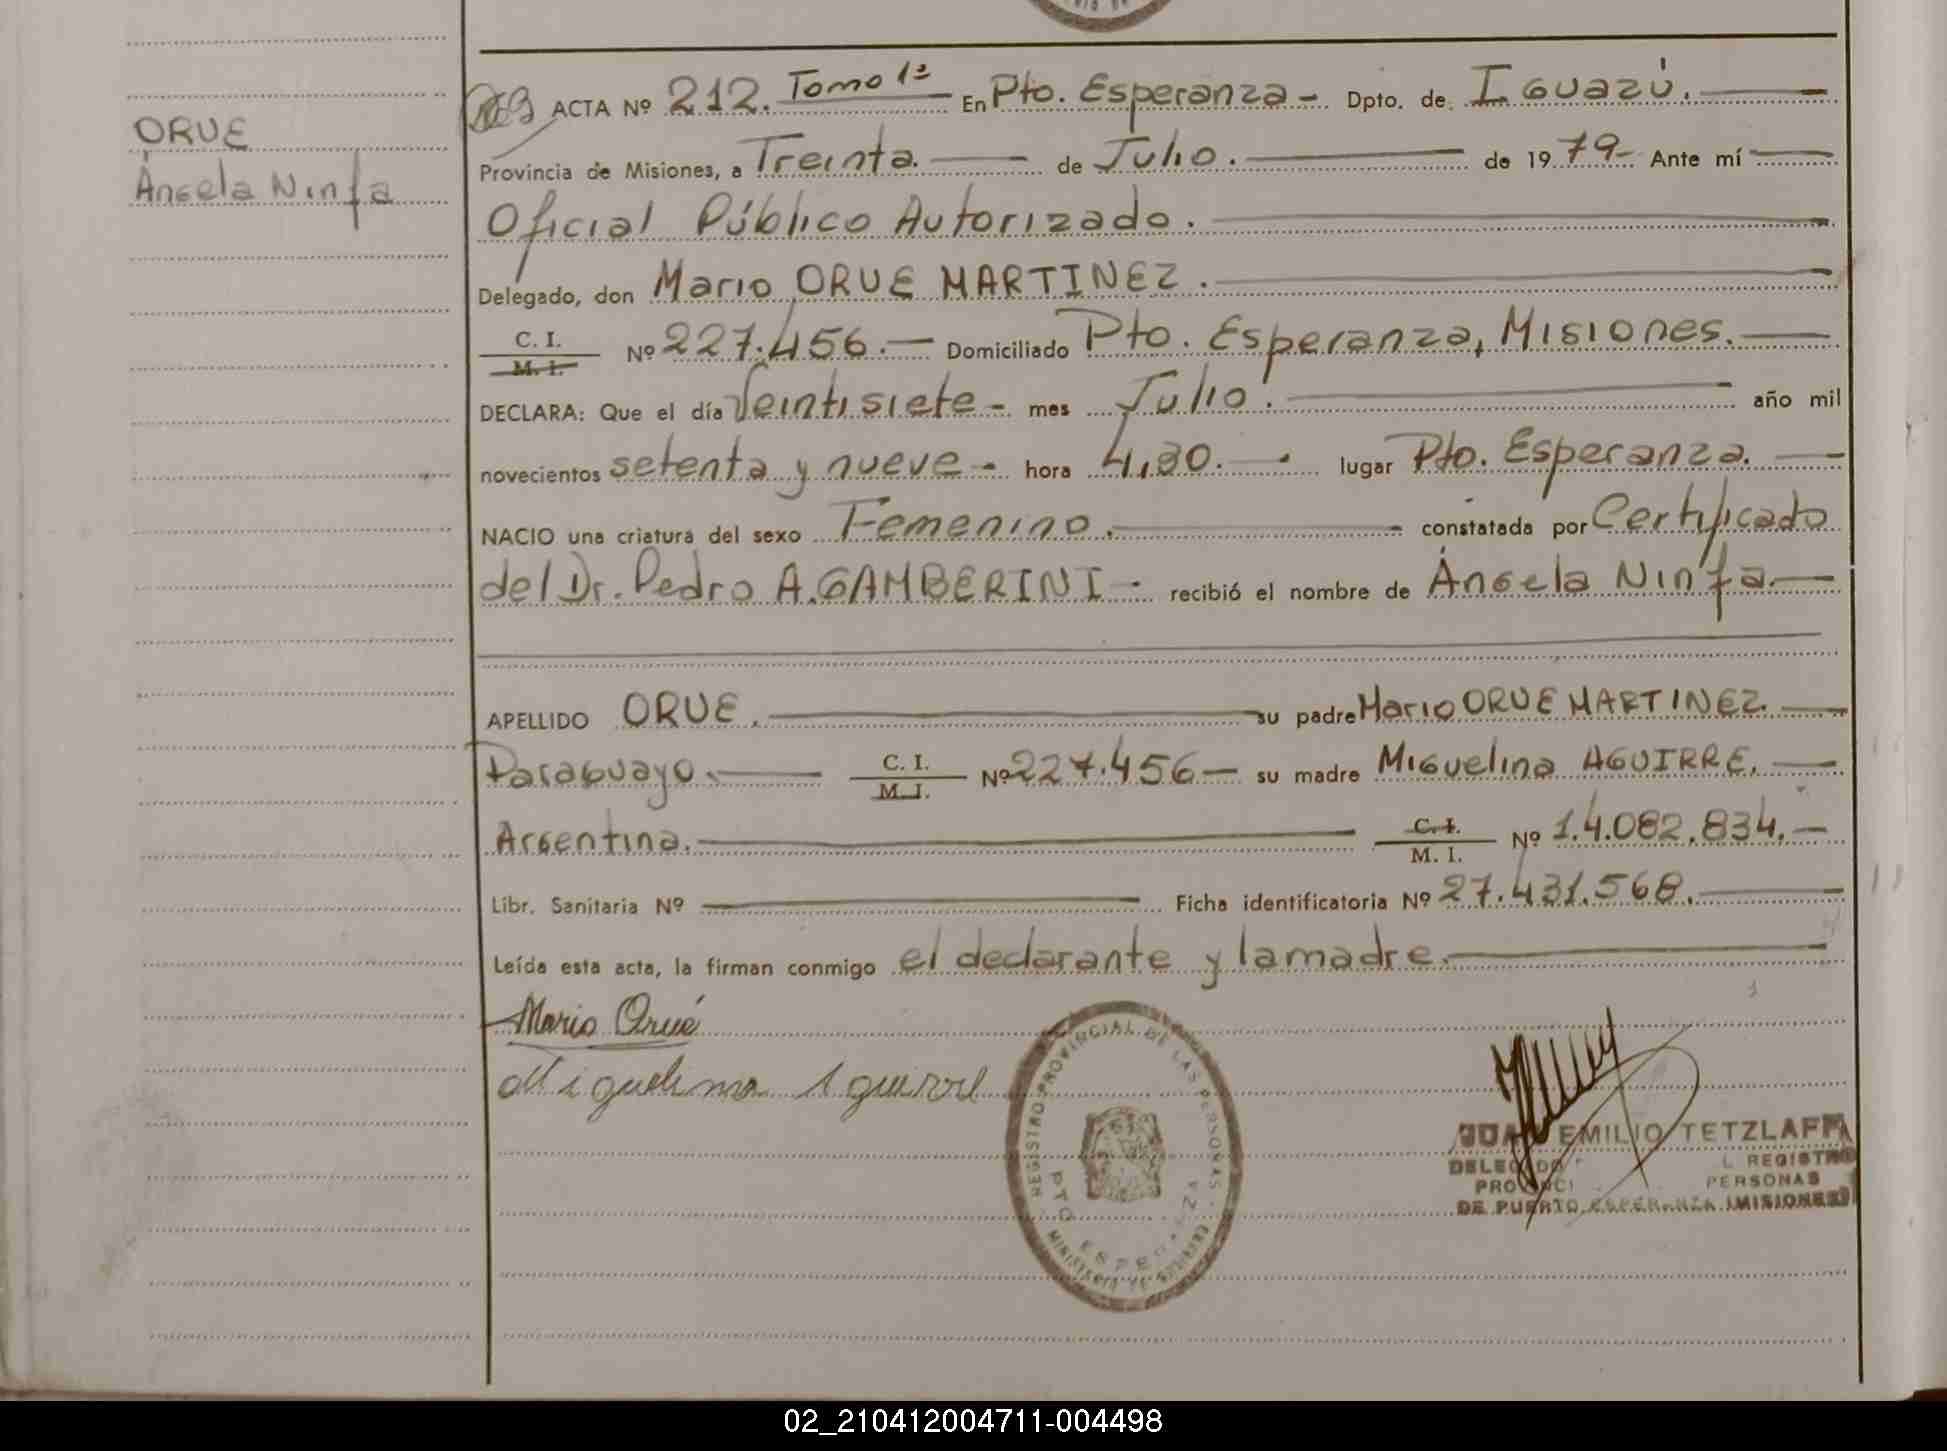 ORUE
Ángela Ninfa
ACTA Nº 212. Tomo 1º En Pto. Esperanza - Dpto. de Iguazú.
Provincia de Misiones, a Treinta. de Julio. de 1979- Ante mí
Oficial Público Autorizado.
Delegado, don Mario ORUE MARTINEZ.
C. I.
M. I.
Nº 227.456.- Domiciliado Pto. Esperanza, Misiones.
DECLARA: Que el día Veintisiete - mes Julio. año mil
novecientos setenta y nueve - hora 4,30. lugar Pto. Esperanza.
NACIO una criatura del sexo Femenino. constatada por Certificado
del Dr. Pedro A. GAMBERINI - recibió el nombre de Ángela Ninfa.
APELLIDO ORUE. su padre Mario ORUE MARTINEZ.
Paraguayo. C. I. M. I. Nº 227.456 - su madre Miguelina AGUIRRE.
Argentina. C. I. M. I. Nº 14.082.834.-
Libr. Sanitaria Nº Ficha identificatoria Nº 27.431.568.
Leída esta acta, la firman conmigo el declarante y la madre.
Mario Orué
Miguelina Aguirre
REGISTRO PROVINCIAL DE LAS PERSONAS
PTO ESPERANZA
EMILIO TETZLAFF
REGISTRO
PERSONAS
DE PUERTO ESPERANZA (MISIONES)
02_210412004711-004498